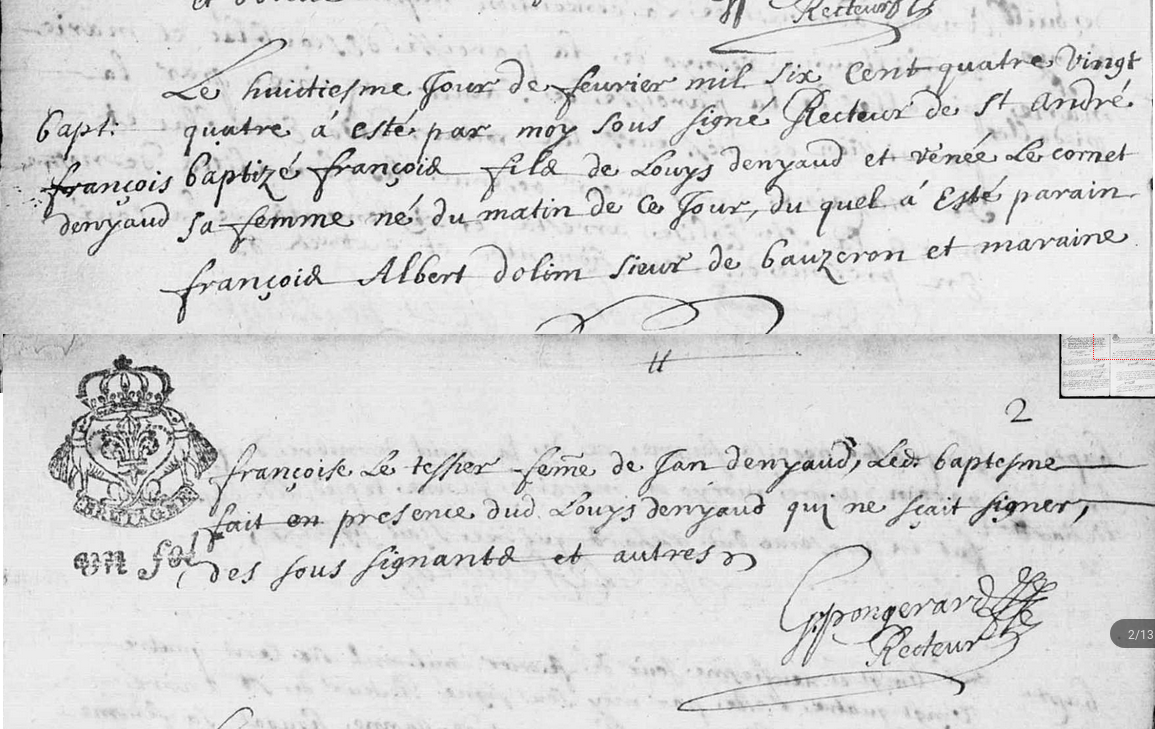 Recteur
Le huictiesme Jour de feuvrier mil six Cent quatre Vingt
bapt: quatre á esté par moy sous signé Recteur de St André
françois baptizé françois fils de Louys denyaud et renée Le cornet
denyaud sa femme né du matin de Ce Jour, du quel á Esté parain
françois Albert dolim sieur de bauzeron et maraine
2
françoise Le tessier feme de Jan denyaud, Led. baptesme
BRETAGNE
fait en presence dud. Louys denyaud qui ne sçait signer,
un sol
des sous signants et autres
Recteur
2/13